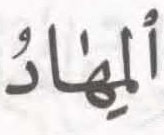 أَلْمِهَادُ